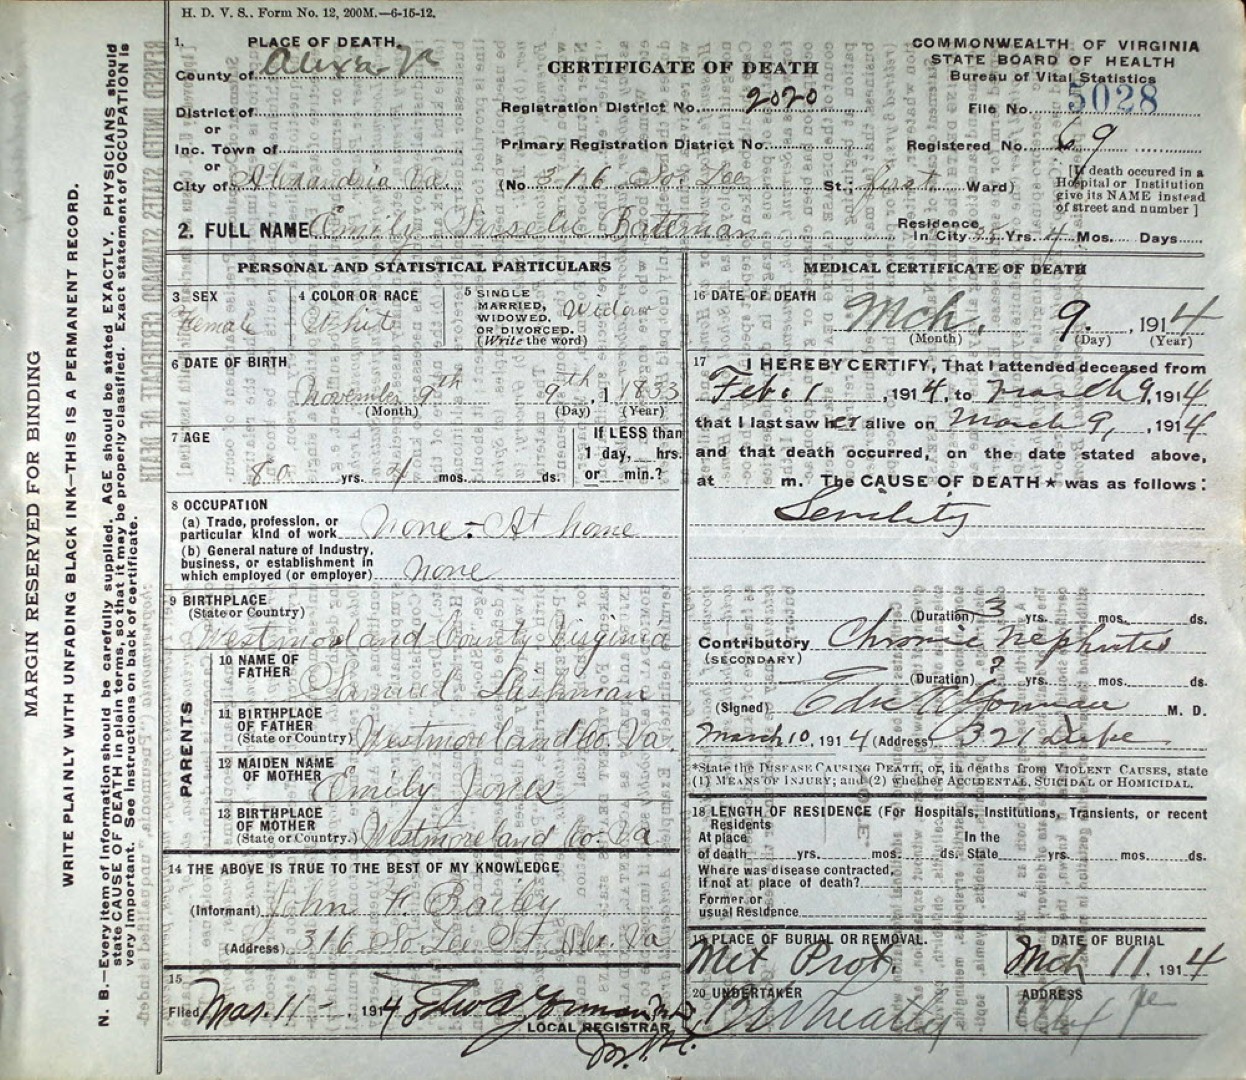 H. D. V. S.. Form No. 12, 200M.—6-15-12.
1. PLACE OF DEATH.
County of Alexa Va
District of
or
Inc. Town of
or
City of Alexandria Va.
CERTIFICATE OF DEATH
Registration District No. 2020
Primary Registration District No.
(No 316 So Lee St.; first Ward)
COMMONWEALTH OF VIRGINIA
STATE BOARD OF HEALTH
Bureau of Vital Statistics
File No. 5028
Registered No. 69
[If death occured in a
Hospital or Institution
give its NAME instead
of street and number ]
2. FULL NAME Emily Bateman
Residence
In City Yrs. 4 Mos. Days
PERSONAL AND STATISTICAL PARTICULARS
3 SEX
Female
4 COLOR OR RACE
White
5 SINGLE
MARRIED,
WIDOWED,
OR DIVORCED.
(Write the word)
Widow
6 DATE OF BIRTH
November 9th 9th, 1 1833
(Month) (Day) (Year)
7 AGE
80 yrs. 4 mos. ds.
If LESS than
1 day, hrs.
or min.?
8 OCCUPATION
(a) Trade, profession, or
particular kind of work None - At home
(b) General nature of Industry,
business, or establishment in
which employed (or employer) None
9 BIRTHPLACE
(State or Country)
Westmoreland County Virginia
PARENTS
10 NAME OF
FATHER
Samuel
11 BIRTHPLACE
OF FATHER
(State or Country) Westmoreland Co. Va.
12 MAIDEN NAME
OF MOTHER
Emily Jones
13 BIRTHPLACE
OF MOTHER
(State or Country.) Westmoreland Co. Va
14 THE ABOVE IS TRUE TO THE BEST OF MY KNOWLEDGE
(Informant) John F. Bailey
(Address) 316 So Lee St Alx. Va
15
Filed Mar. 11 —, 1914 Edw A Gorman M.D.
LOCAL REGISTRAR
MEDICAL CERTIFICATE OF DEATH
16 DATE OF DEATH
Mch. 9., 1914
(Month) (Day) (Year)
17 I HEREBY CERTIFY, That I attended deceased from
Feb. 1, 1914, to March 9, 1914
that I last saw her alive on March 9, , 1914
and that death occurred, on the date stated above,
at m. The CAUSE OF DEATH * was as follows:
Senility
(Duration) 3 yrs. mos. ds.
Contributory Chronic Nephritis
(SECONDARY)
(Duration) ? yrs. mos. ds.
(Signed) Edw A Gorman M. D.
March 10, 1914 (Address) 321 Duke
*State the DISEASE CAUSING DEATH, or, in deaths from VIOLENT CAUSES, state
(1) MEANS OF INJURY; and (2) whether ACCIDENTAL, SUICIDAL OR HOMICIDAL.
18 LENGTH OF RESIDENCE (For Hospitals, Institutions, Transients, or recent
Residents
At place In the
of death yrs. mos. ds. State yrs. mos. ds.
Where was disease contracted,
if not at place of death?
Former or
usual Residence
19 PLACE OF BURIAL OR REMOVAL.
Met Prot.
DATE OF BURIAL
Mch 11 1914
20 UNDERTAKER
B Wheatley
ADDRESS
MARGIN RESERVED FOR BINDING
WRITE PLAINLY WITH UNFADING BLACK INK—THIS IS A PERMANENT RECORD.
N. B.—Every item of Information should be carefully supplied. AGE should be stated EXACTLY. PHYSICIANS should
state CAUSE OF DEATH in plain terms, so that it may be properly classified. Exact statement of OCCUPATION is
very important. See Instructions on back of certificate.